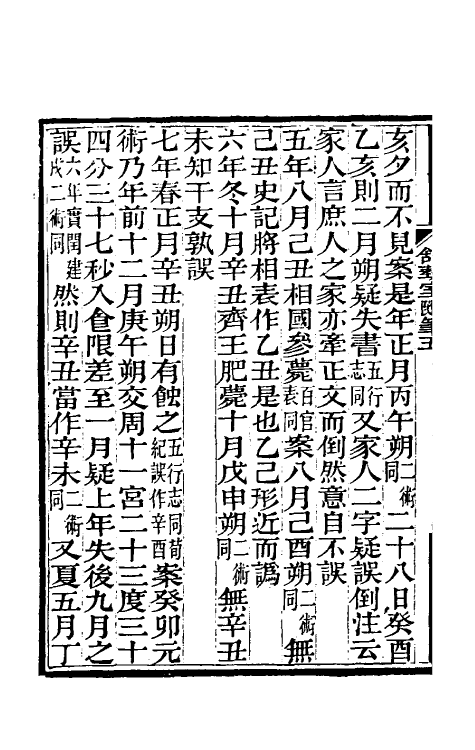 舒藝室隨筆五
亥夕而不見案是年正月丙午朔二術同二十八日癸酉
乙亥則二月朔疑失書五行志同又家人二字疑誤倒注云
家人言庶人之家亦牽正文而倒然意自不誤
五年八月己丑相國參薨百官表同案八月己酉朔二術同無
己丑史記將相表作乙丑是也乙己形近而譌
六年冬十月辛丑齊王肥薨十月戊申朔二術同無辛丑
未知干支孰誤
七年春正月辛丑朔日有蝕之五行志同荀紀誤作辛酉案癸卯元
術乃年前十二月庚午朔交周十一宮二十三度三十
四分三十七秒入食限差至一月疑上年失後九月之
誤六年實閏建戌二術同然則辛丑當作辛未二術同又夏五月丁